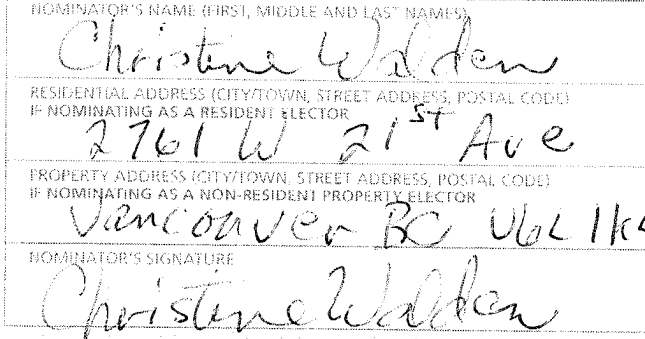 NOMINATOR'S NAME (FIRST, MIDDLE AND LAST NAMES)
Christine Walden
RESIDENTIAL ADDRESS (CITY/TOWN, STREET ADDRESS, POSTAL CODE)
IF NOMINATING AS A RESIDENT ELECTOR
2761 W 21st Ave
PROPERTY ADDRESS (CITY/TOWN, STREET ADDRESS, POSTAL CODE)
IF NOMINATING AS A NON-RESIDENT PROPERTY ELECTOR
Vancouver BC V6L 1K4
NOMINATOR'S SIGNATURE
Christine Walden